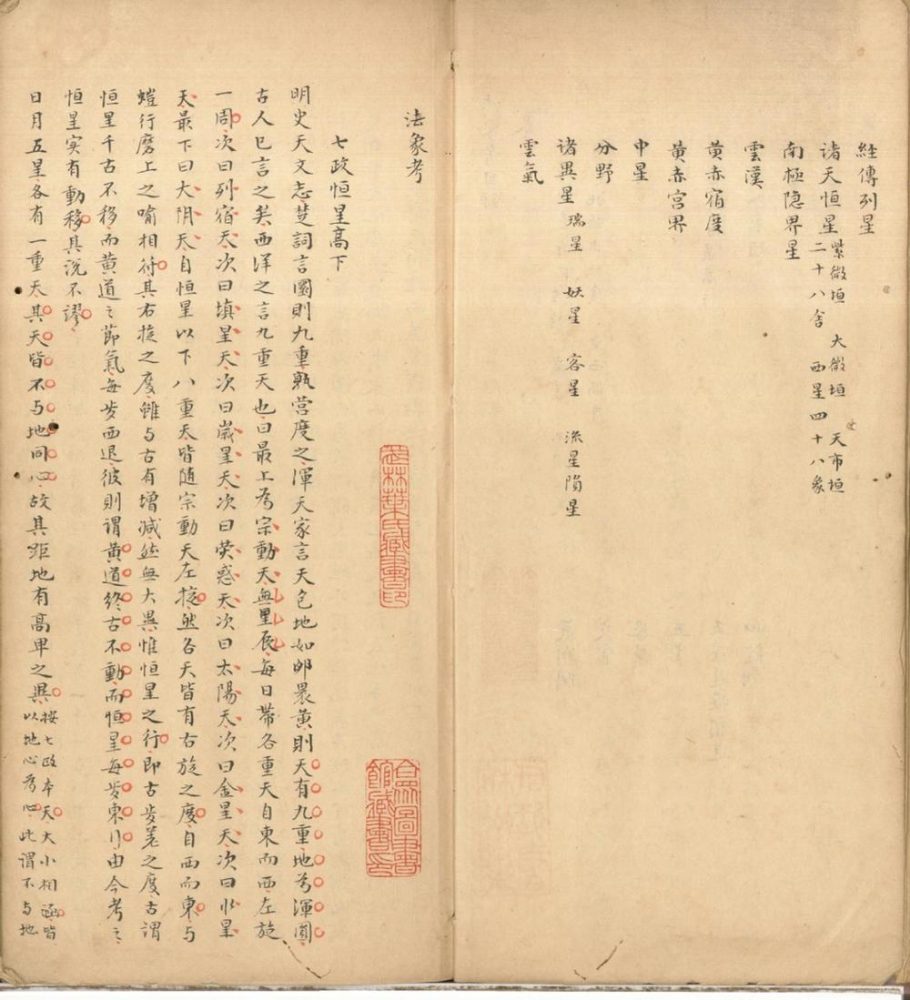 經傳列星
諸天恒星 紫微垣 大微垣 天市垣
二十八舍 西星四十八象
南極隐界星
雲漢
黄赤宿度
黄赤宫界
中星
分野
諸異星 瑞星 妖星 客星 流星隕星
雲氣
法象考
七政恒星高下
明史天文志楚詞言圜則九重熟營度之渾天家言天包地如卵裹黄則天有九重地为渾圓
古人已言之矣西洋之言九重天也曰最上为宗動天無星辰每日帶各重天自東而西左旋
一周次曰列宿天次曰填星天次曰嵗星天次曰荧惑天次曰太陽天次曰金星天次曰水星
天最下曰大阴天自恒星以下八重天皆随宗動天左旋然各天皆有右旋之度自西而東与
螘行磨上之喻相符其右旋之度雖与古有增減然無大異惟恒星之行即古步差之度古謂
恒星千古不移而黄道之節氣每步西退彼則謂黄道終古不動而恒星每步東行由今考之
恒星实有動移其説不謬
日月五星各有一重天其天皆不与地同心故其距地有高卑之異 按七政本天大小相函皆
以地心为心此謂不与地